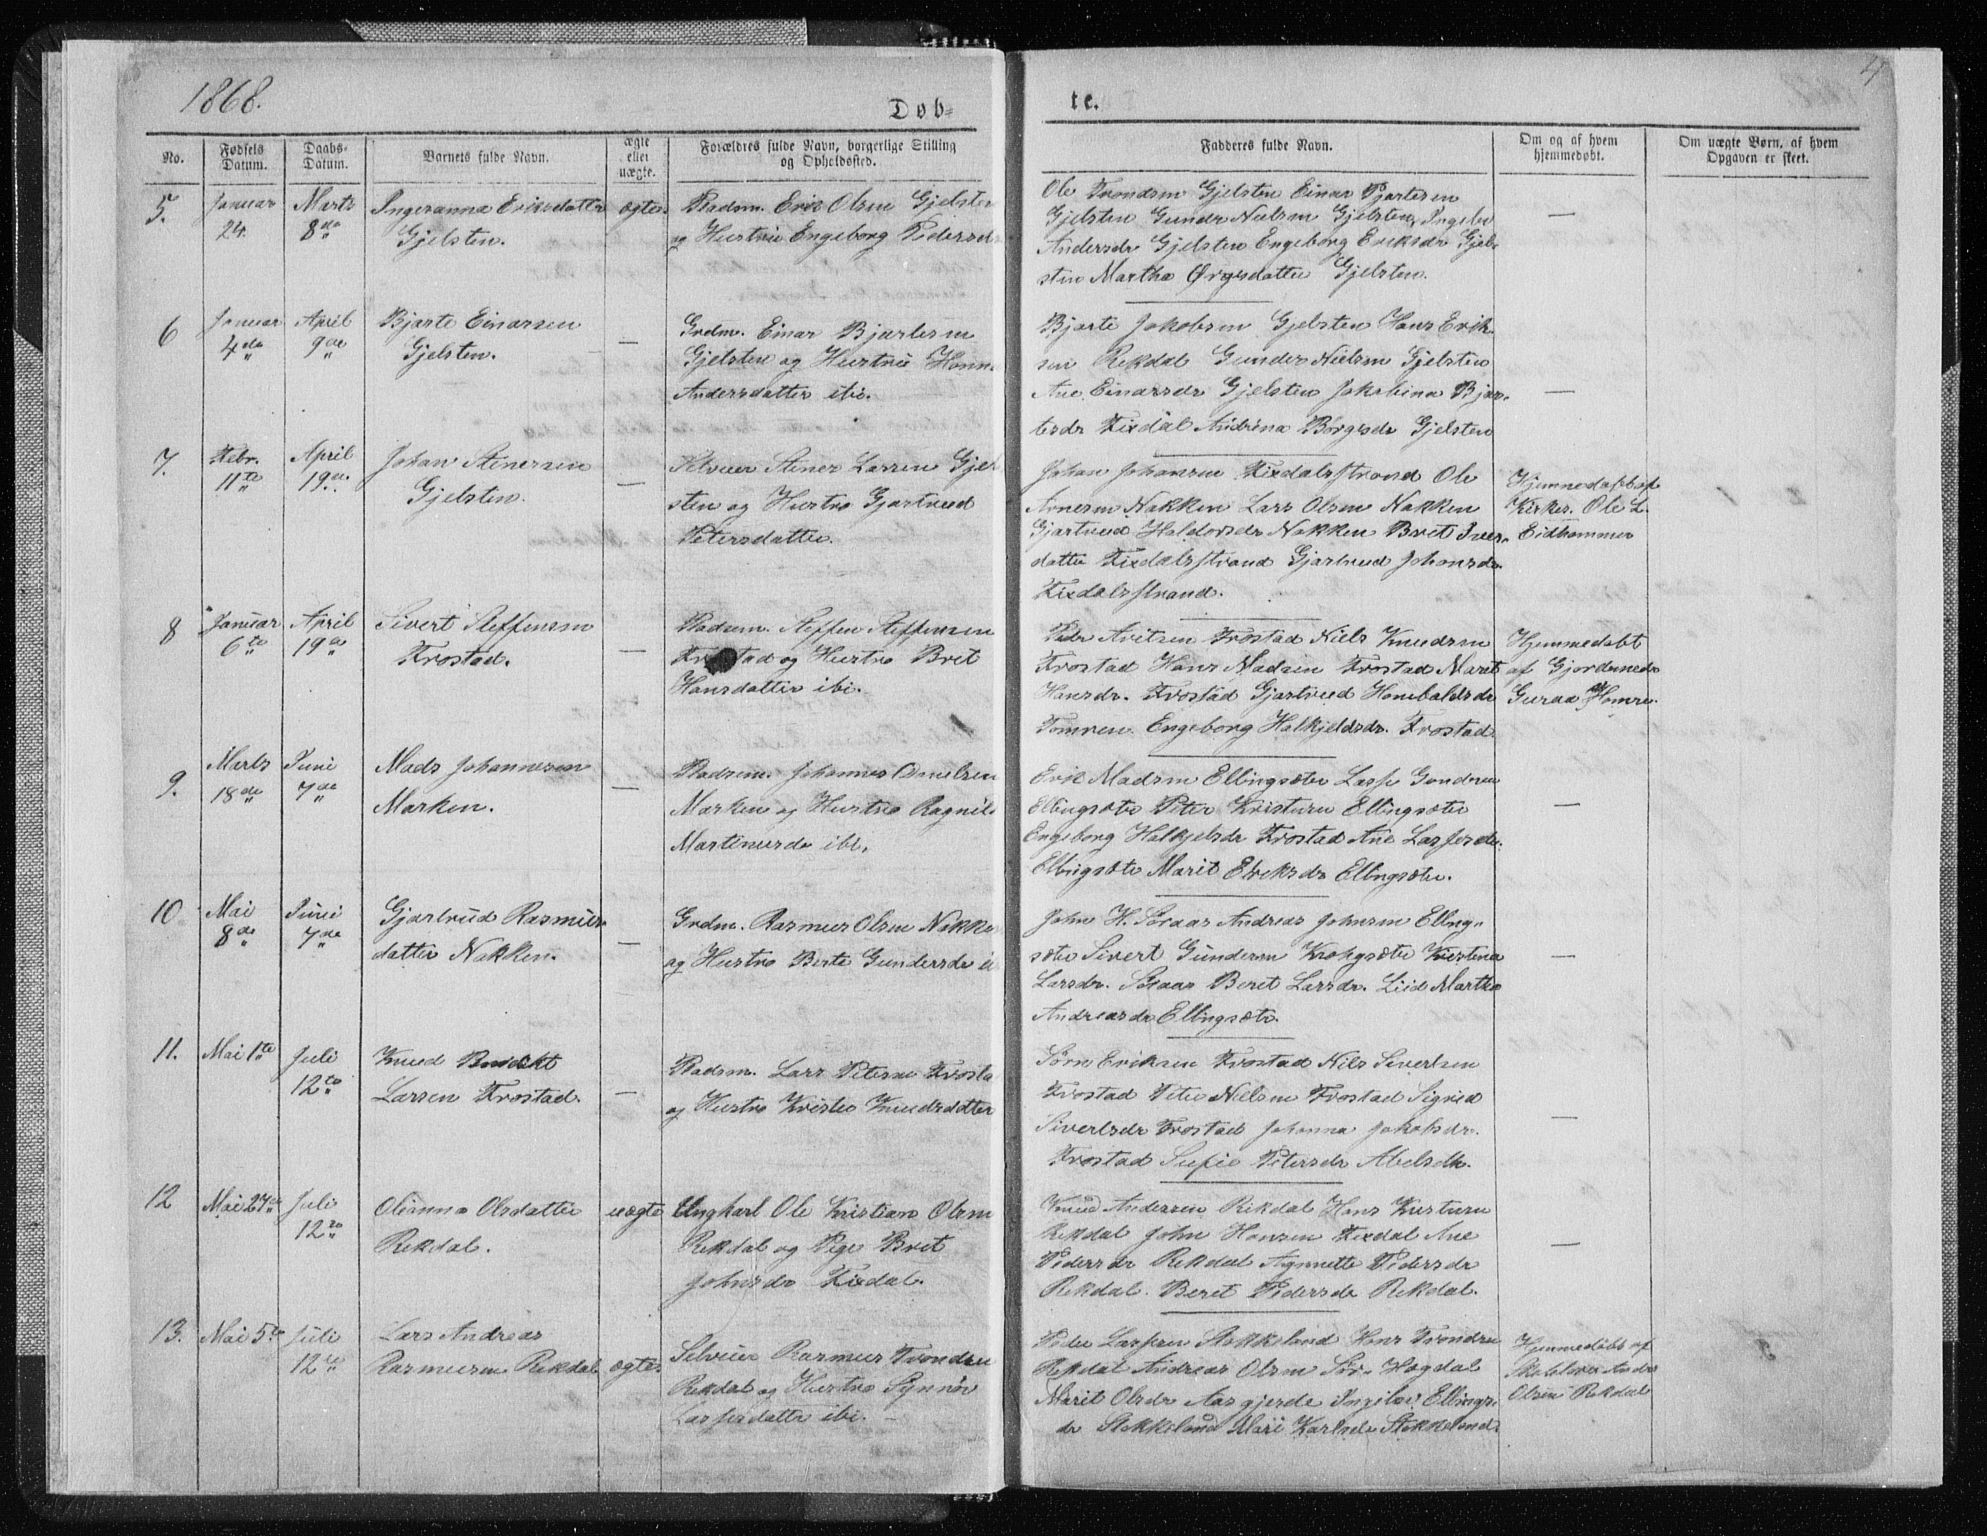 1868.
Døb=
te.
4
No.
Fødsels Datum.
Daabs-Datum.
Barnets fulde Navn.
ægte eller uægte.
Forældres fulde Navn, borgerlige Stilling og Opholdssted.
Fadderes fulde Navn.
Om og af hvem hjemmedøbt.
Om uægte Børn, af hvem Opgaven er skeet.
5. Januar Marts Ingeranna Eriksdatter ægte. Pladsm. Erik Olsen Gjelsten
24. 8de Gjelsten.
og Hustrue Engeborg Pedersdr
Ole Trondsen Gjelsten Einar Bjartesen
Gjelsten Gunder Nielsen Gjelsten, Ingebr
Andersdr Gjelsten Engeborg Eriksdr Gjel-
sten Martha Ørgesdatter Gjelsten. —
6 Januar April Bjarte Einarsen — Grdm. Einar Bjartesen
4de 9de Gjelsten.
Gjelsten og Hustrue Hanna
Andersdatter ibi.
Bjarte Jakobsen Gjelsten Hans Erik-
sen Rekdal Gunder Nielsen Gjelsten
Ane Einarsdr Gjelsten Jakobina Bjar-
tesdr Fixdal Andrina Børgesdr Gjelsten —
7. Febr. April Johan Stenersen — Selveier Stener Larsen Gjel
11te 19de Gjelsten.
sten og Hustro Gjertrud
Petersdatter.
Johan Johansen Fixdalsstrand Ole
Arnesen Nakken Lars Olsen Nakken
Gjertrud Haldorsdr Nakken Beret Iver-
datter Fixdalsstrand Gjertrud Johansdr
Fixdalsstrand.
Hjemmedøbt af
Kirkes. Ole L.
Eidhammer
8 Januar April Sivert Steffensen — Pladsm. Steffen Steffensen
6te 19de Frostad.
Frostad og Hustro Brit
Hansdatter ibi.
Peder Frostad Niels Knudsen
Frostad Hans Madsen Frostad Marit
Hansdr. Frostad Gjertrud Hanibalsdr
Tomren Engeborg Halkjeldsdr. Frostad
Hjemmedøbt
af Gjordemoder
Guraa
9. Marts Juni Mads Johannesen — Pladsm. Johannes
18de 7de Marken.
Marken og Hustro Ragnild
Martinusdr ibi.
Erik Madsen Ellingsæter Lasse Gundersen
Ellingsæter Peter Kristursen Ellingsæter
Engeborg Halkjelsdr Frostad Ane Lassesdr.
Ellingsæter Marit Eriksdr Ellingsæter. —
10 Mai Juni Gjertrud Rasmus- — Grdm. Rasmus Olsen Nakke
8de 7de datter Nakken.
og Hustro Berte Gundersdr
John H. Soraas Andreas Johnsen Elling-
sæter Sivert Gundersen Krohgsæter Kristena
Larsdr. Soraas Beret Larsdr. Liid Martha
Andreasdr Ellingsæter. —
11. Mai 1te Juli Knud Benedikt — Pladsm. Lars Petersen Frosta
12te Larsen Frostad.
og Hustro Kristie Knudsdatter
Søren Eriksen Frostad Nils Sivertsen
Frostad Peter Nielsen Frostad Sigrid
Sivertsdr Frostad Johanna Jakobsdr.
Frostad Sufie Petersdr —
12 Mai 27de Juli Olianna Olsdatter uægte Ungkarl Ole Kristian Olsen
12te Rekdal.
Rekdal og Pige Brit
Johnsdr Fixdal.
Knud Andersen Rekdal Hans Kristursen
Rekdal John Hansen Fixdal Ane
Pedersdr Rekdal Agnnette Pedersdr
Rekdal. Beret Pedersdr Rekdal. —
13. Mai 5te Juli Lars Andreas
12te Rasmussen Rekdal ægte. Selveier Rasmus Trondsen
Rekdal og Hustro Synnøv
Lassesdatter ibi.
Peder Lassesen Stokkeland Hans Trondsen
Rekdal Andreas Olsen Sør-
Marit Olsdr Aasgjerde Ingebor Ellings-
dr Stokkeland Mari Karlsdr Stokkeland
Hjemmedøbt af
Skolelærer Andr
Olsen Rekdal